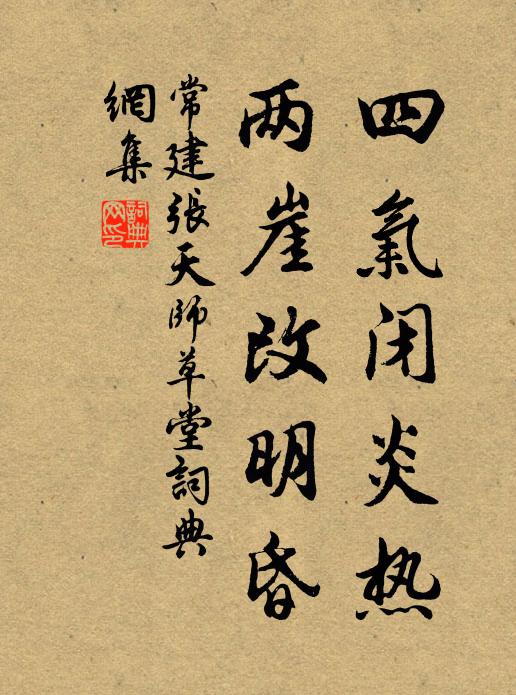 四氣闭炎热
两崖改明昏
常建張天師草堂詞典
網集
詞典
网印